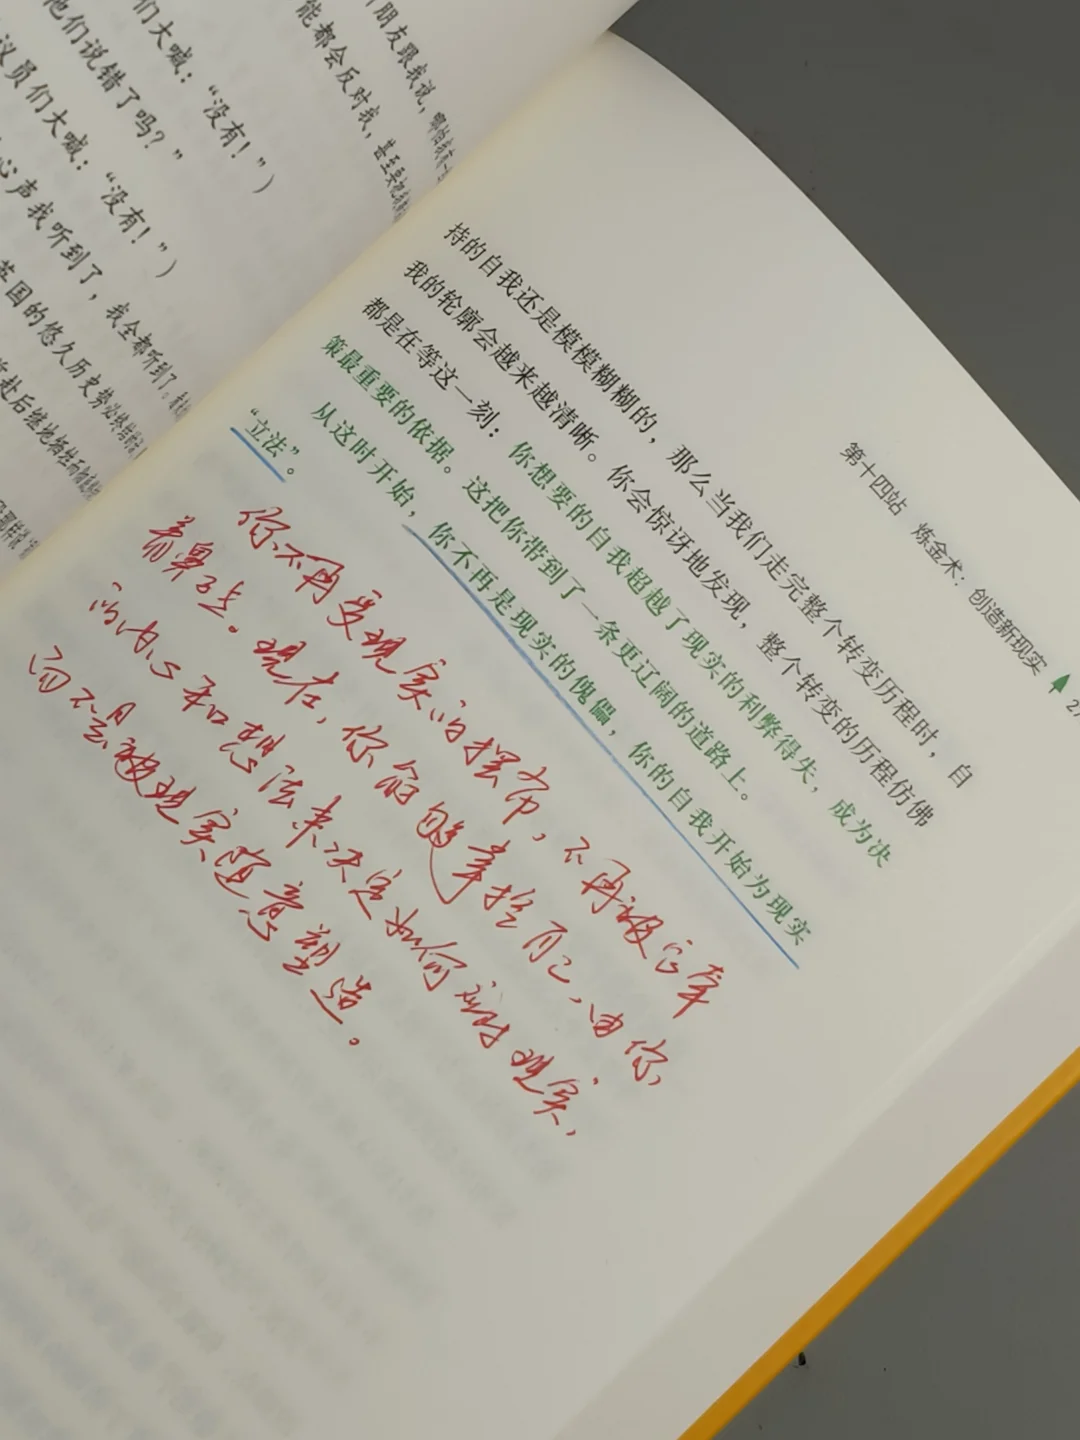 们大喊：“没有！”）
他们说错了吗？”
议员们大喊：“没有！”）
心声我听到了，我全都听到了。
国的悠久历史势必
赴后继地牺牲
朋友跟我说，哪怕我有一
能都会反对我，甚至要把我
第十四站 炼金术：创造新现实
27
持的自我还是模模糊糊的，那么当我们走完整个转变历程时，自
我的轮廓会越来越清晰。你会惊讶地发现，整个转变的历程仿佛
都是在等这一刻：你想要的自我超越了现实的利弊得失，成为决
策最重要的依据。这把你带到了一条更辽阔的道路上。
从这时开始，你不再是现实的傀儡，你的自我开始为现实
“立法”。
你不再受现实的摆布，不再被它牵
着鼻子走。现在，你能够掌控自己，由你
的内心和想法来决定如何应对现实，
而不是被现实随意塑造。